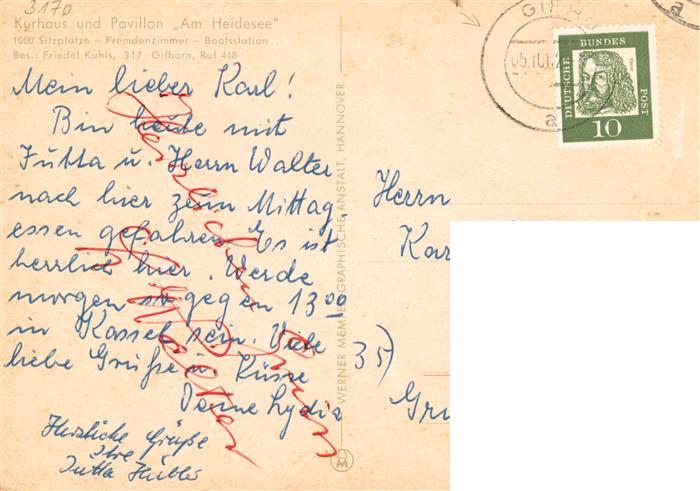 3170
Kurhaus und Pavillon „Am Heidesee"
1000 Sitzplätze – Fremdenzimmer – Bootsstation
Bes.: Friedel Kuhls, 317 Gifhorn, Ruf 448
Mein lieber Karl!
Bin heute mit
Jutta u. Herrn Walter
nach hier zum Mittag
essen gefahren. Es ist
herrlich hier. Werde
morgen so gegen 13 00
in Kassel sein. Viele
liebe Grüße u. Küsse
Deine Lydia
Herzliche Grüße
Ihre
Jutta
Herzlichen Gruss
Walter
WERNER MEMOGRAPHISCHE ANSTALT, HANNOVER
M
GIFH
a
a
DEUTSCHE
BUNDES
POST
Dürer
10
Herrn
Kar
35)
Gru